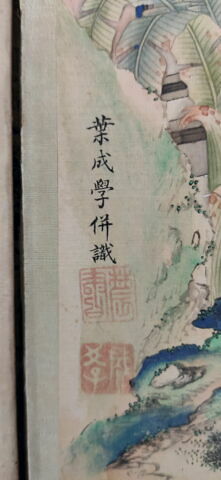 葉成學併識